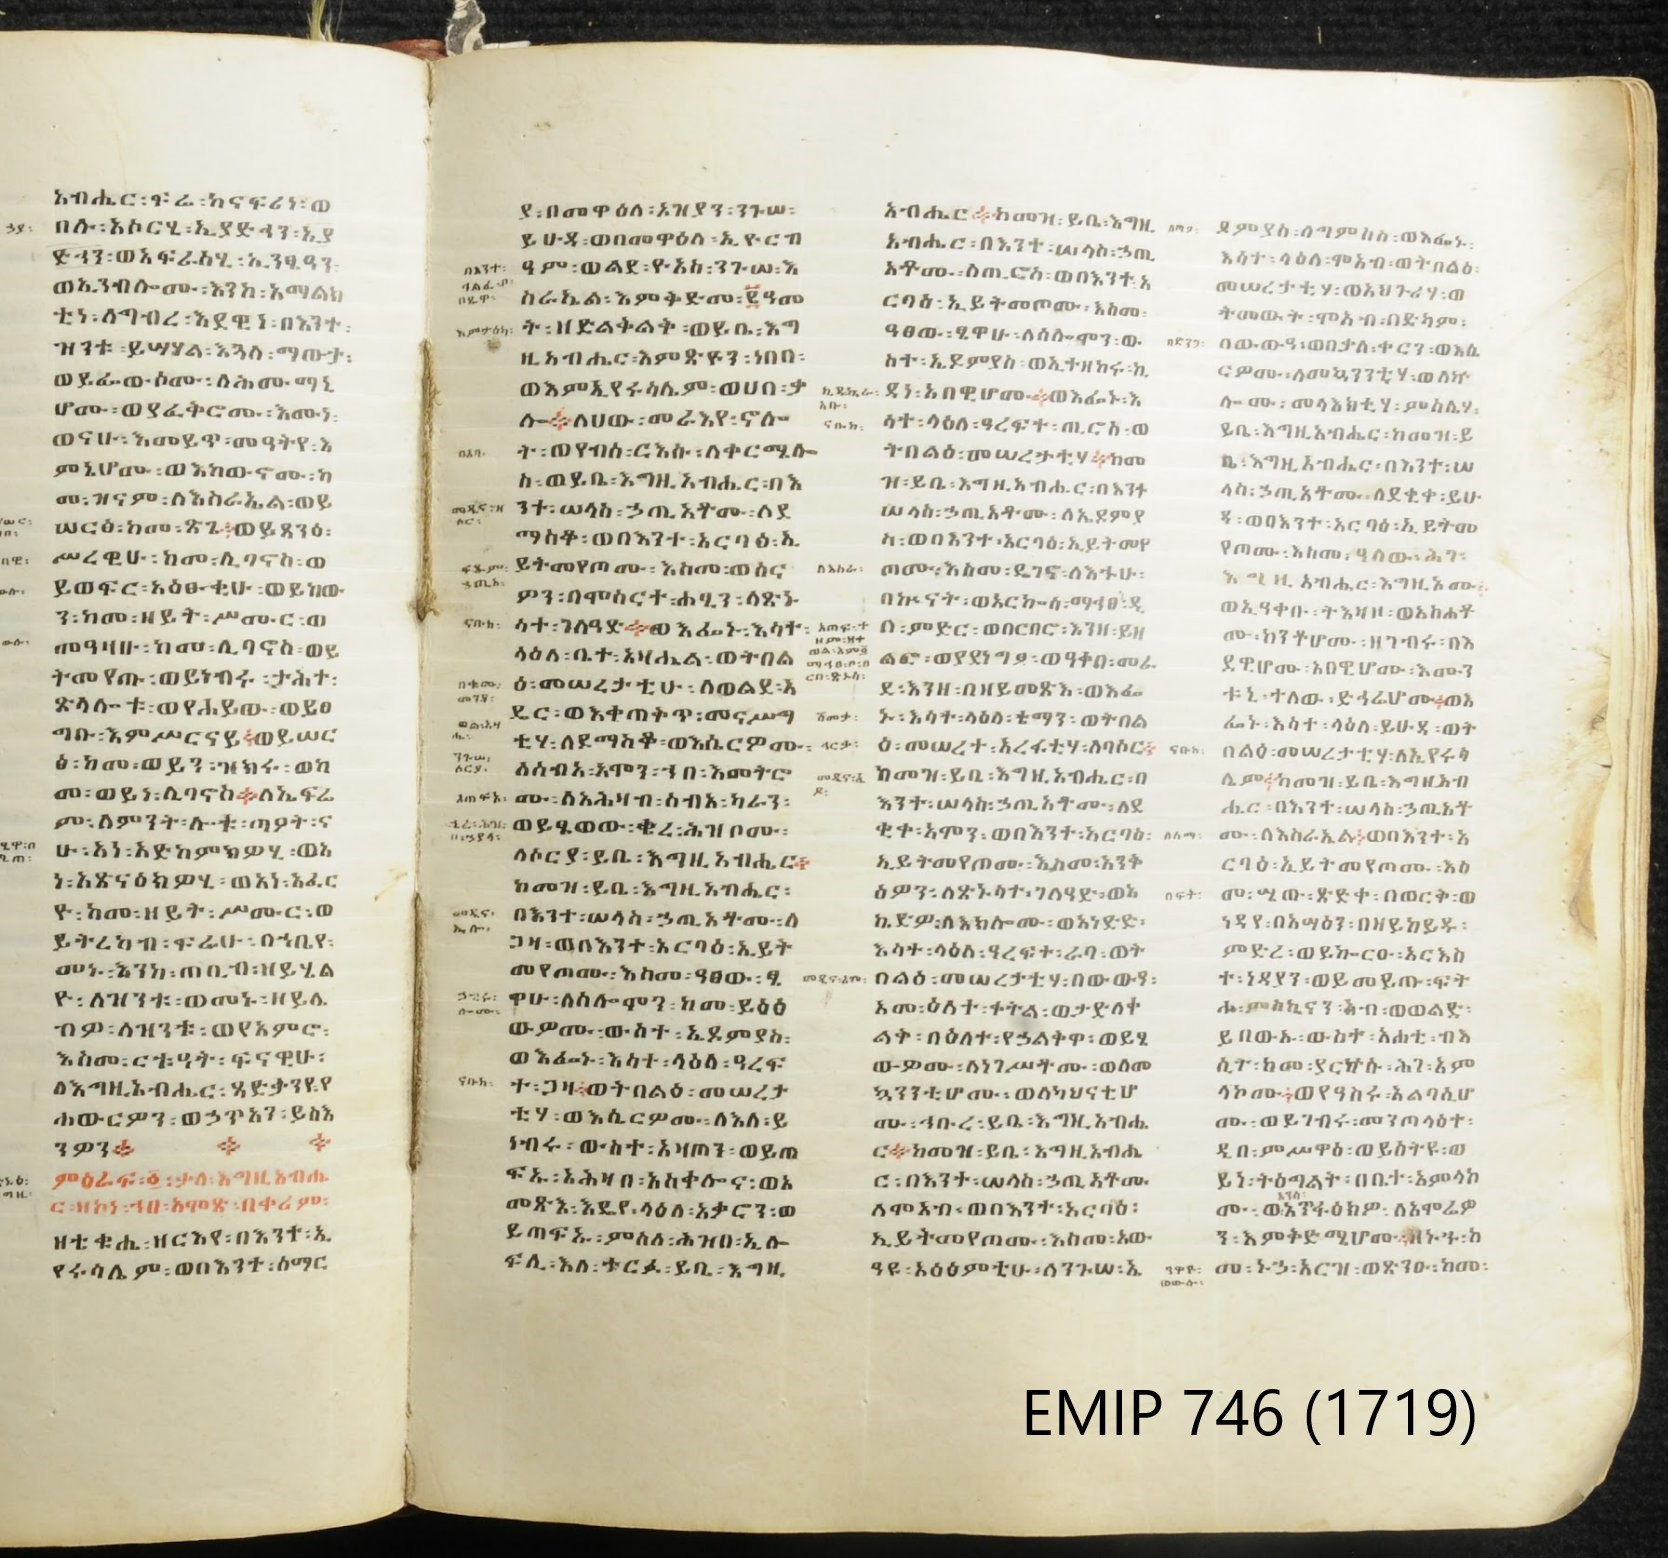 አብሔር፡ፍሬ፡ከናፍሪነ፡ወ
በሉ፡አስርሂ፡ኢያድኃን፡አያ
ድኃን፡ወአፍራስሂ፡ኢንፂዓን፡
ወኢንብሎሙ፡እንከ፡አማልክ
ቲነ፡ለግብረ፡እደዊነ፡በእንተ፡
ዝንቱ፡ይሣሃል፡እጓለ፡ማውታ፡
ወይፌውሶሙ፡ለሕሙማኒ
ሆሙ፡ወያፈቅሮሙ፡እሙነ፡
ወናሁ፡እመይጥ፡መዓትየ፡እ
ምኒሆሙ፡ወእከውኖሙ፡ከ
መ፡ዝናም፡ለእስራኤል፡ወይ
ሠርፅ፡ከመ፡ጽጌ፡ወይጸንዕ፡
ሥረዊሁ፡ከመ፡ሊባኖስ፡ወ
ይወፍር፡አዕፁቂሁ፡ወይከው
ን፡ከመ፡ዘይት፡ሥሙር፡ወ
መዓዛሁ፡ከመ፡ሊባኖስ፡ወይ
ትመየጡ፡ወይነብሩ፡ታሕተ፡
ጽላሎቱ፡ወየሐይው፡ወይፀ
ግቡ፡እምሥርናይ፡ወይሠር
ፅ፡ከመ፡ወይን፡ዝክሩ፡ወከ
መ፡ወይነ፡ሊባኖስ፡ለኤፍሬ
ም፡ለምንት፡ሎቱ፡ጣዖት፡ና
ሁ፡አነ፡አድከምክዎሂ፡ወአ
ነ፡አጽናዕክዎሂ፡ወአነ፡አፈር
ዮ፡ከመ፡ዘይት፡ሥሙር፡ወ
ይትረከብ፡ፍሬሁ፡በኀቤየ፡
መኑ፡እንከ፡ጠቢብ፡ዘይሂል
ዮ፡ለዝንቱ፡ወመኑ፡ዘይሌ
ብዎ፡ለዝንቱ፡ወየአምሮ፡
እስመ፡ርቱዓት፡ፍናዊሁ፡
ለእግዚአብሔር፡ጻድቃንየየ
ሐውርዎን፡ወኃጥአን፡ይስእ
ንዎን
ምዕራፍ፡፩፡ቃለ፡እግዚአብሔ
ር፡ዘኮነ፡ኀበ፡አሞጽ፡በቀሪም፡
ዘቲቁሔ፡ዘርእየ፡በእንተ፡ኢ
የሩሳሌም፡ወበእንተ፡ሰማር
ያ፡በመዋዕለ፡አዝያን፡ንጉሠ፡
ይሁዳ፡ወበመዋዕለ፡ኢዮርብ
ዓም፡ወልደ፡ዮአስ፡ንጉሠ፡እ
ስራኤል፡እምቅድመ፡፪ዓመ
ት፡ዘድልቅልቅ፡ወይቤ፡እግ
ዚአብሔር፡እምጽዮን፡ነበበ፡
ወእምኢየሩሳሌም፡ወሀበ፡ቃ
ሎ፡ለሀው፡መራእየ፡ኖሎ
ት፡ወየብሰ፡ርእሱ፡ለቀርሜሎ
ስ፡ወይቤ፡እግዚአብሔር፡በእ
ንተ፡ሠላስ፡ኃጢአቶሙ፡ለደ
ማስቆ፡ወበእንተ፡አርባዕ፡ኢ
ይትመየጦሙ፡እስመ፡ወሰር
ዎን፡በሞሰርተ፡ሐፂን፡ላጽኑ
ሳተ፡ገለዓድ፡ወእፌኑ፡እሳተ፡
ላዕለ፡ቤተ፡አዛሔል፡ወትበል
ዕ፡መሠረታቲሁ፡ለወልደ፡አ
ዴር፡ወእቀጠቅጥ፡መናሥግ
ቲሃ፡ለደማስቆ፡ወእሴርዎሙ፡
ለሰብአ፡አሞን፡ኀበ፡እመትሮ
ሙ፡ለአሕዛብ፡ሰብአ፡ካራን፡
ወይፄወው፡ቂረ፡ሕዝቦሙ፡
ለሶርያ፡ይቤ፡እግዚአብሔር
ከመዝ፡ይቤ፡እግዚአብሔር፡
በእንተ፡ሠላስ፡ኃጢአቶሙ፡ለ
ጋዛ፡ወበእንተ፡አርባዕ፡ኢይት
መየጦሙ፡እስመ፡ዓፀው፡ፂ
ዋሁ፡ለሰሎሞን፡ከመ፡ይዕፅ
ውዎሙ፡ውስተ፡ኢዶምያስ፡
ወእፌኑ፡እሳተ፡ላዕለ፡ዓረፍ
ተ፡ጋዛ፡ወትበልዕ፡መሠረታ
ቲሃ፡ወእሴርዎሙ፡ለእለ፡ይ
ነብሩ፡ውስተ፡አዛጦን፡ወይጠ
ፍኡ፡አሕዛበ፡አስቀሎና፡ወአ
መጽእ፡እዴየ፡ላዕለ፡አቃሮን፡ወ
ይጠፍኡ፡ምስለ፡ሕዝበ፡ኢሎ
ፍሊ፡እለ፡ተርፉ፡ይቤ፡እግዚ
አብሔር፡ከመዝ፡ይቤ፡እግዚ
አብሔር፡በእንተ፡ሠላስ፡ኃጢ
አቶሙ፡ለጢሮስ፡ወበእንተ፡አ
ርባዕ፡ኢይትመየጦሙ፡እስመ፡
ዓፀው፡ፂዋሁ፡ለሰሎሞን፡ው
ስተ፡ኢዶምያስ፡ወኢተዘከሩ፡ኪ
ዳነ፡አበዊሆሙ፡ወእፌኑ፡እ
ሳተ፡ላዕለ፡ዓረፍተ፡ጢሮስ፡ወ
ትበልዕ፡መሠረታቲሃ፡ከመ
ዝ፡ይቤ፡እግዚአብሔር፡በእንተ
ሠላስ፡ኃጢአቶሙ፡ለኢዶምያ
ስ፡ወበእንተ፡አርባዕ፡ኢይትመየ
ጦሙ፡እስመ፡ዴገኖ፡ለእኁሁ፡
በኲናት፡ወአርኰሰ፡ማኅፀነ፡ዲ
በ፡ምድር፡ወበርበሮ፡እንዘ፡ይዘ
ልፎ፡ወያደነግፆ፡ወዓቀበ፡መራ
ደ፡እንዘ፡በዘይመጽእ፡ወእፌ
ኑ፡እሳተ፡ላዕለ፡ቴማን፡ወትበል
ዕ፡መሠረተ፡አረፋቲሃ፡ለባሶር
ከመዝ፡ይቤ፡እግዚአብሔር፡በ
እንተ፡ሠላስ፡ኃጢአቶሙ፡ለደ
ቂቀ፡አሞን፡ወበእንተ፡አርባዕ፡
ኢይትመየጠሙ፡እስመ፡አንቅ
ዕዎን፡ለጽኑሳተ፡ገለዓድ፡ወአ
ኪድዎ፡ለእክሎሙ፡ወአነድድ፡
እሳተ፡ላዕለ፡ዓረፍተ፡ራባ፡ወት
በልዕ፡መሠረታቲሃ፡በውውዓ፡
አመ፡ዕለተ፡ቀትል፡ወታድለቀ
ልቅ፡በዕለተ፡የኃልቅዋ፡ወይፂ
ውዎሙ፡ለነገሥቶሙ፡ወለመ
ኳንንቲሆሙ፡ወለካህናቲሆ
ሙ፡ኅቡረ፡ይቤ፡እግዚአብሔ
ር፡ከመዝ፡ይቤ፡እግዚአብሔ
ር፡በእንተ፡ሠላስ፡ኃጢአቶሙ
ለሞአብ፡ወበእንተ፡አርባዕ፡
ኢይትመየጦሙ፡እስመ፡አው
ዓዩ፡አዕፅምቲሁ፡ለንጉሠ፡ኤ
ዶምያስ፡ለግምስስ፡ወእፌኑ፡
እሳተ፡ላዕለ፡ሞአብ፡ወትበልዕ፡
መሠረታቲሃ፡ወአህጉሪሃ፡ወ
ትመውት፡ሞአብ፡በድካም፡
በውውዓ፡ወበቃለ፡ቀርን፡ወእሴ
ርዎሙ፡ለመኳንንቲሃ፡ወለኵ
ሎሙ፡መሳእክቲሃ፡ምስሌሃ፡
ይቤ፡እግዚአብሔር፡ከመዝ፡ይ
ቤ፡እግዚአብሔር፡በእንተ፡ሠ
ላስ፡ኃጢአቶሙ፡ለደቂቀ፡ይሁ
ዳ፡ወበእንተ፡አርባዕ፡ኢይትመ
የጦሙ፡እስመ፡ዓለው፡ሕገ፡
እግዚአብሔር፡እግዚአሙ፡
ወኢዓቀቡ፡ትእዛዞ፡ወአስሐቶ
ሙ፡ከንቶሆሙ፡ዘገብሩ፡በእ
ደዊሆሙ፡አበዊሆሙ፡እሙን
ቱ፡ኒ፡ተለው፡ድኅሬሆሙ፡ወእ
ፌኑ፡እሳተ፡ላዕለ፡ይሁዳ፡ወት
በልዕ፡መሠረታቲሃ፡ለኢየሩሳ
ሌም፡ከመዝ፡ይቤ፡እግዚአብ
ሔር፡በእንተ፡ሠላስ፡ኃጢአቶ
ሙ፡ለእስራኤል፡ወበእንተ፡አ
ርባዕ፡ኢይትመየጦሙ፡እስ
መ፡ሤው፡ጽድቀ፡በወርቅ፡ወ
ነዳየ፡በአሣዕን፡በዘይከይዱ፡
ምድረ፡ወይኰርዑ፡አርእስ
ተ፡ነዳያን፡ወይመይጡ፡ፍት
ሐ፡ምስኪናን፡አብ፡ወወልድ፡
ይበውኡ፡ውስተ፡አሐቲ፡ብእ
ሲት፡ከመ፡ያርኵሱ፡ሕገ፡አም
ላኮሙ፡ወየዓስሩ፡አልባሲሆ
ሙ፡ወይገብሩ፡መንጦላዕተ፡
ዲበ፡ምሥዋዕ፡ወይሰትዩ፡ወ
ይነ፡ትዕግልት፡በቤተ፡አምላኮ
ሙ፡ወአንፃዕክዎ፡ለአሞሬዎ
ን፡እምቅድሜሆሙ፡ዘኑኁ፡ከ
መ፡ኑኃ፡አርዝ፡ወጽንዑ፡ከመ፡
EMIP 746 (1719)